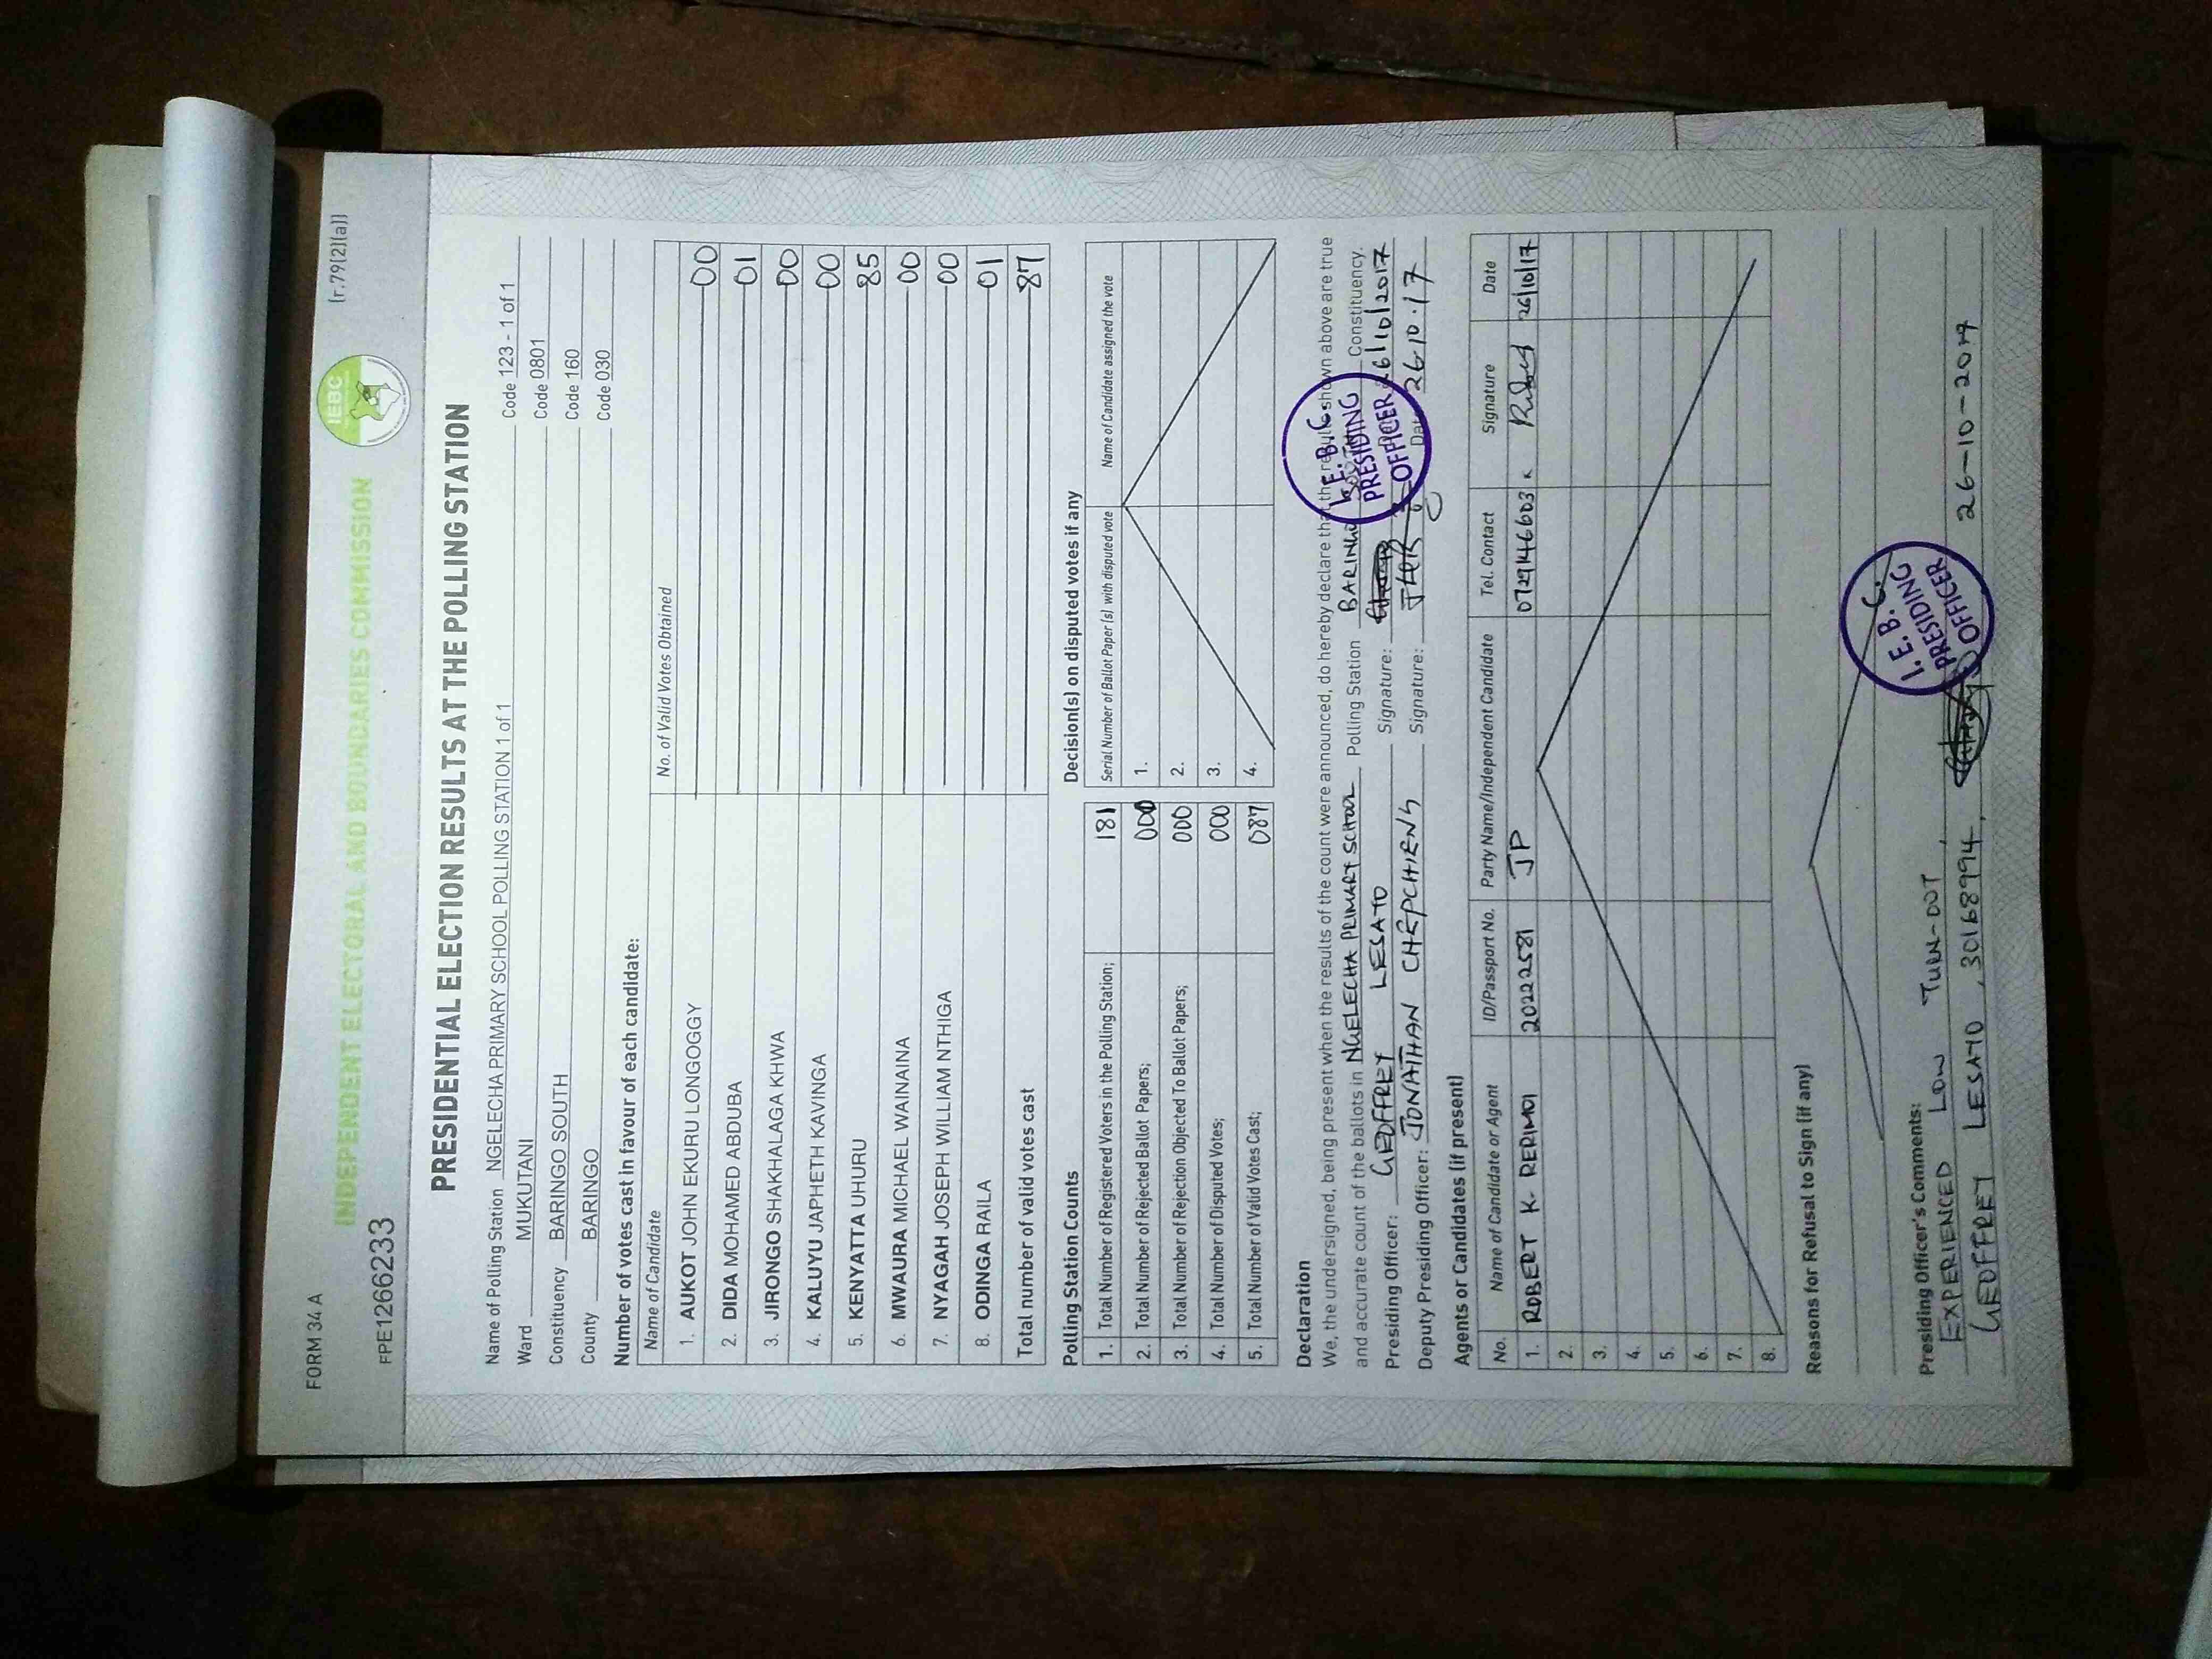 FORM 34 A
(r.79(2)(a))
IEBC
INDEPENDENT ELECTORAL AND BOUNDARIES COMMISSION
FPE1266233
PRESIDENTIAL ELECTION RESULTS AT THE POLLING STATION
Name of Polling Station NGELECHA PRIMARY SCHOOL POLLING STATION 1 of 1 Code 123 - 1 of 1
Ward MUKUTANI Code 0801
Constituency BARINGO SOUTH Code 160
County BARINGO Code 030
Number of votes cast in favour of each candidate:
Name of Candidate No. of Valid Votes Obtained
1. AUKOT JOHN EKURU LONGOGGY 00
2. DIDA MOHAMED ABDUBA 01
3. JIRONGO SHAKHALAGA KHWA 00
4. KALUYU JAPHETH KAVINGA 00
5. KENYATTA UHURU 85
6. MWAURA MICHAEL WAINAINA 00
7. NYAGAH JOSEPH WILLIAM NTHIGA 00
8. ODINGA RAILA 01
Total number of valid votes cast 87
Polling Station Counts
1. Total Number of Registered Voters in the Polling Station; 181
2. Total Number of Rejected Ballot Papers; 000
3. Total Number of Rejection Objected To Ballot Papers; 000
4. Total Number of Disputed Votes; 000
5. Total Number of Valid Votes Cast; 087
Decision(s) on disputed votes if any
Serial Number of Ballot Paper (s) with disputed vote Name of Candidate assigned the vote
1.
2.
3.
4.
Declaration
We, the undersigned, being present when the results of the count were announced, do hereby declare that the results shown above are true
and accurate count of the ballots in NGELECHA PRIMARY SCHOOL Polling Station BARINGO SOUTH Constituency.
Presiding Officer: GEOFFREY LESATO Signature: 26/10/2017
Deputy Presiding Officer: JONATHAN CHEPCHIENG Signature: Date 26.10.17
I.E.B.C.
PRESIDING
OFFICER
Agents or Candidates (if present)
No. Name of Candidate or Agent ID/Passport No. Party Name/Independent Candidate Tel. Contact Signature Date
1. ROBERT K. RERIMOI 20222581 JP 0729146603 26/10/17
2.
3.
4.
5.
6.
7.
8.
Reasons for Refusal to Sign (if any)
Presiding Officer's Comments:
EXPERIENCED LOW TURN-OUT
GEOFFREY LESATO, 30168994, 26-10-2017
I.E.B.C.
PRESIDING
OFFICER